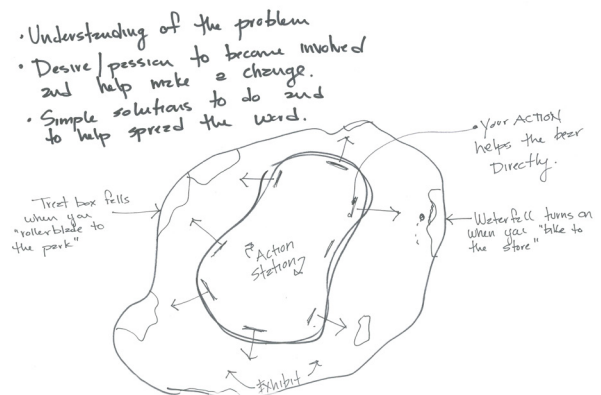 • Understanding of the problem
• Desire/passion to become involved
and help make a change.
• Simple solutions to do and
to help spread the word.
• Your ACTION
helps the bear
Directly.
Treat box falls
when you
"rollerblade to
the park"
Waterfall turns on
when you "bike to
the store"
Action
Station
Exhibit